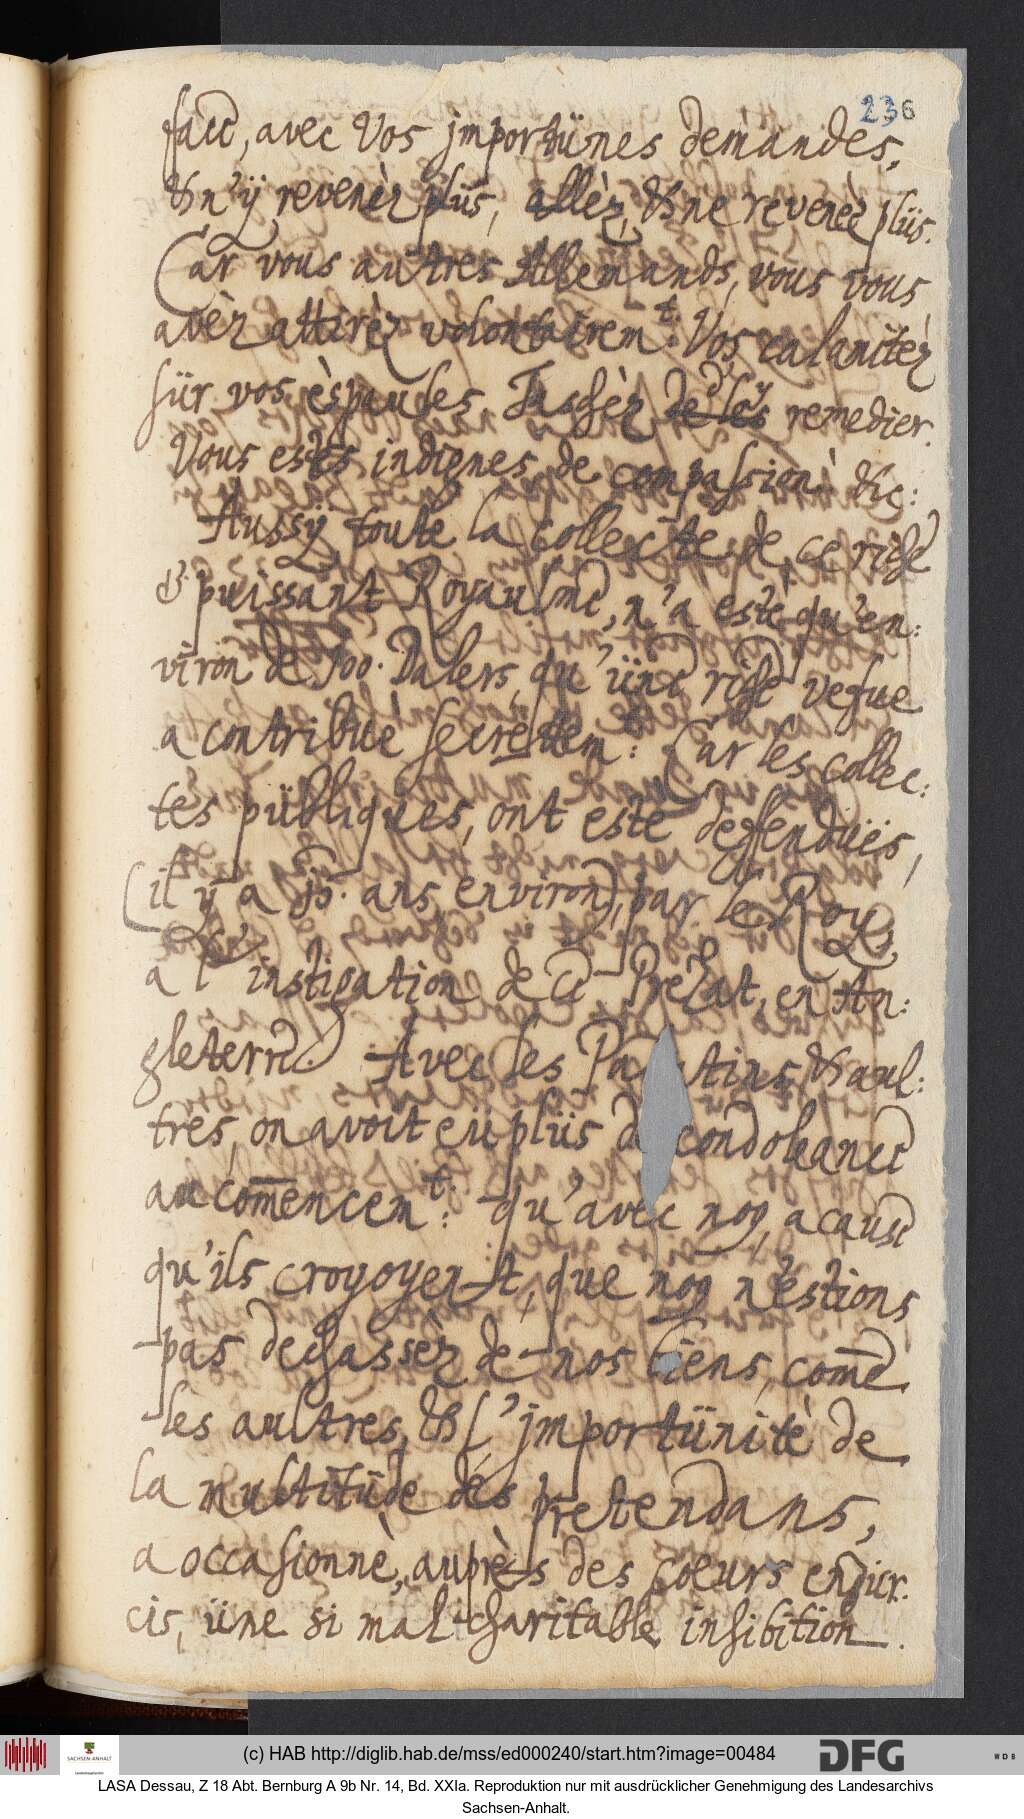 236
face, avec Vos jmportünes demandes,
& n'ÿ revenèz plüs, allèz, & ne revenèz plüs.
Car vous autres Allemands, vous vous
avèz attirèz volontairem:t Vos calamitèz
sür vos èspaules Taschèz d'y remedier.
Vous estes indignes de compassion &c:
Aussÿ toute la collecte de ce riche
& puissant Royaulme, n'a estè qu'en:
viron de 500. Dalers, qu'üne riche vefue
a contribuè secrettem:t Car les collec:
tes pübliques, ont estè deffendües,
(il ÿ a 15. ans, environ), par le Roy,
a l'instigation de ce Prelat, en An:
gleterre. Avec les Pa tins & aul:
tres, on avoit eü plüs de condoleance
au com̄encem:t qu'avec noꝯ, a cause
qu'ils croyoyent, que noꝯ n'estions
pas dechassèz de nos biens, com̄e
les aultres, & l'jmportünitè de
la multitüde des pretendans,
a occasionnè, auprès des coeurs endur:
cis, üne si mal-charitable inhibition.
(c) HAB http://diglib.hab.de/mss/ed000240/start.htm?image=00484
SACHSEN-ANHALT
DFG
WDB
LASA Dessau, Z 18 Abt. Bernburg A 9b Nr. 14, Bd. XXIa. Reproduktion nur mit ausdrücklicher Genehmigung des Landesarchivs
Sachsen-Anhalt.